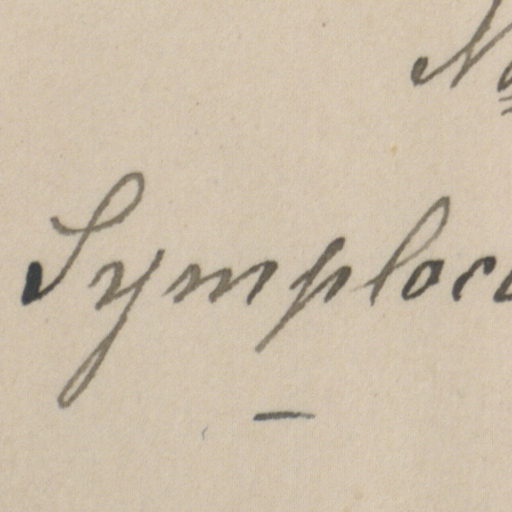 No
Symploc